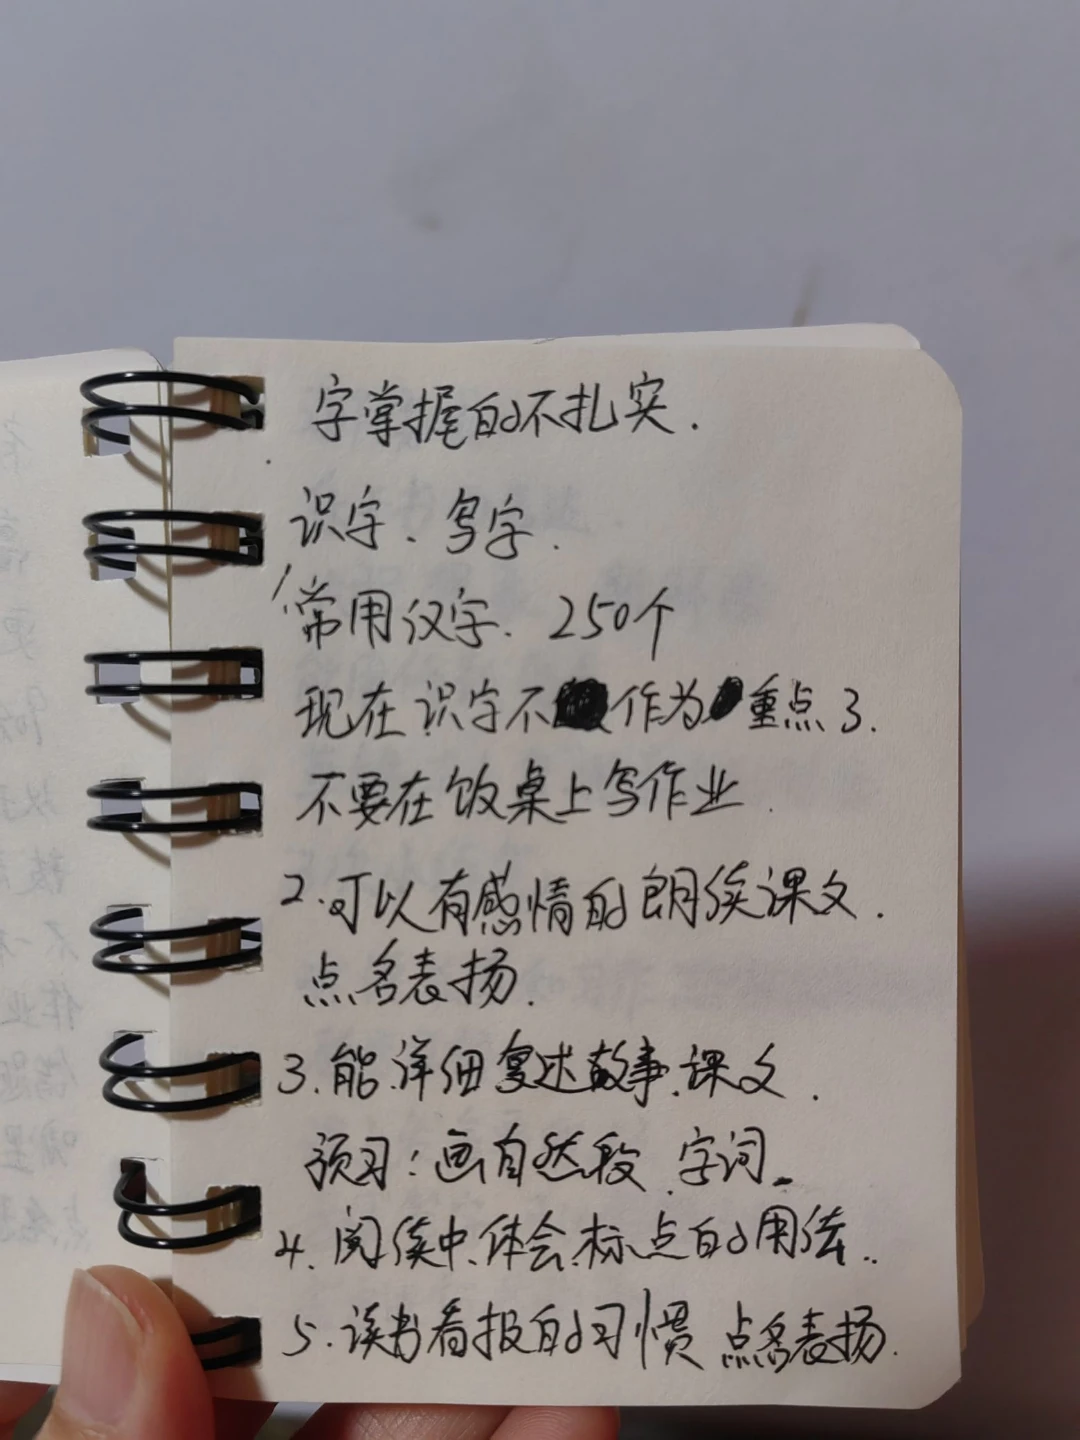 字掌握的不扎实.
识字、写字.
1.常用汉字. 250个
现在识字不作为重点3.
不要在饭桌上写作业.
2.可以有感情的朗读课文.
点名表扬.
3.能详细复述故事.课文.
预习:画自然段.字词.
4.阅读中,体会标点的用法..
5.读书看报的习惯 点名表扬.